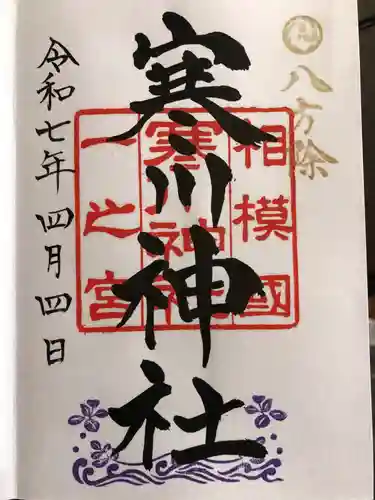 八方除
寒川神社
相模國
寒川神社
一之宮
令和七年四月四日